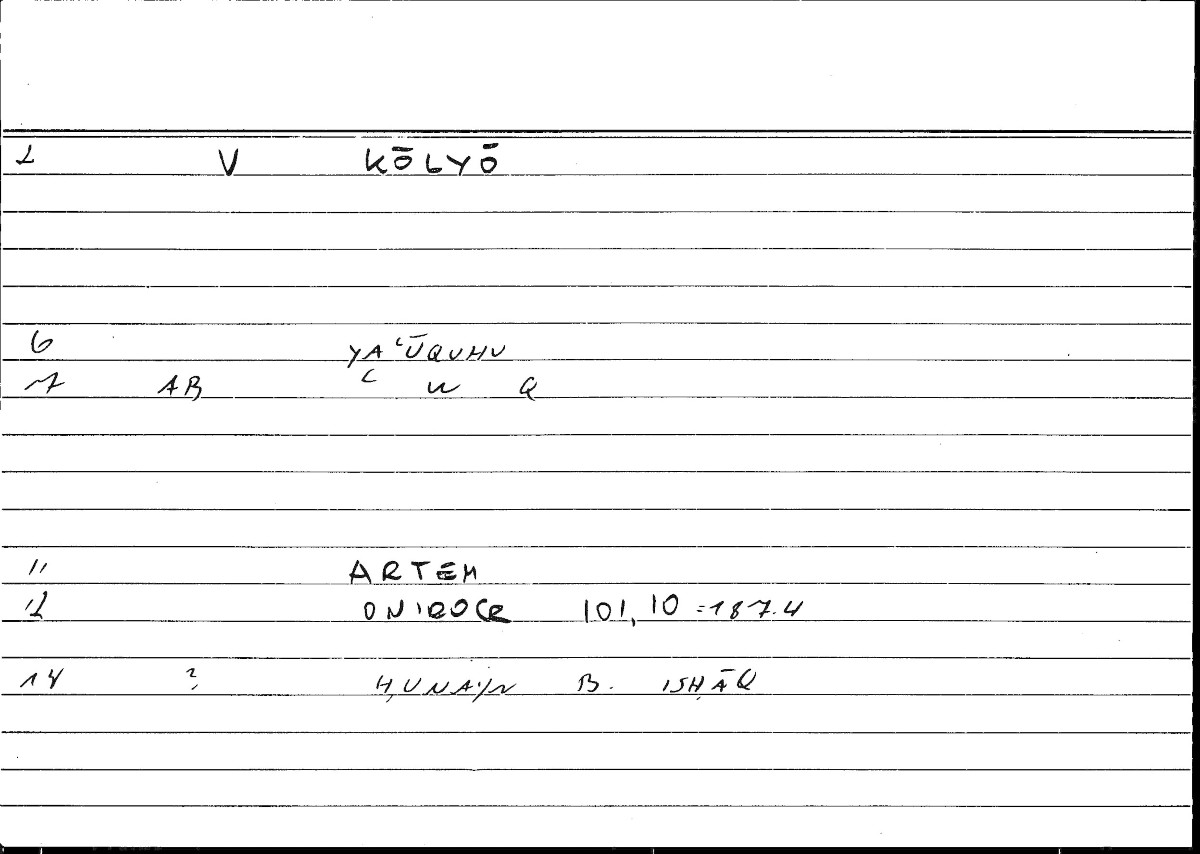 2 V KŌLYŌ
6 YAʿŪQUHU
7 AB ʿ W Q
11 ARTEM
12 ONIROCR 101,10 =187.4
14 ? ḤUNAYN B. ISḤĀQ